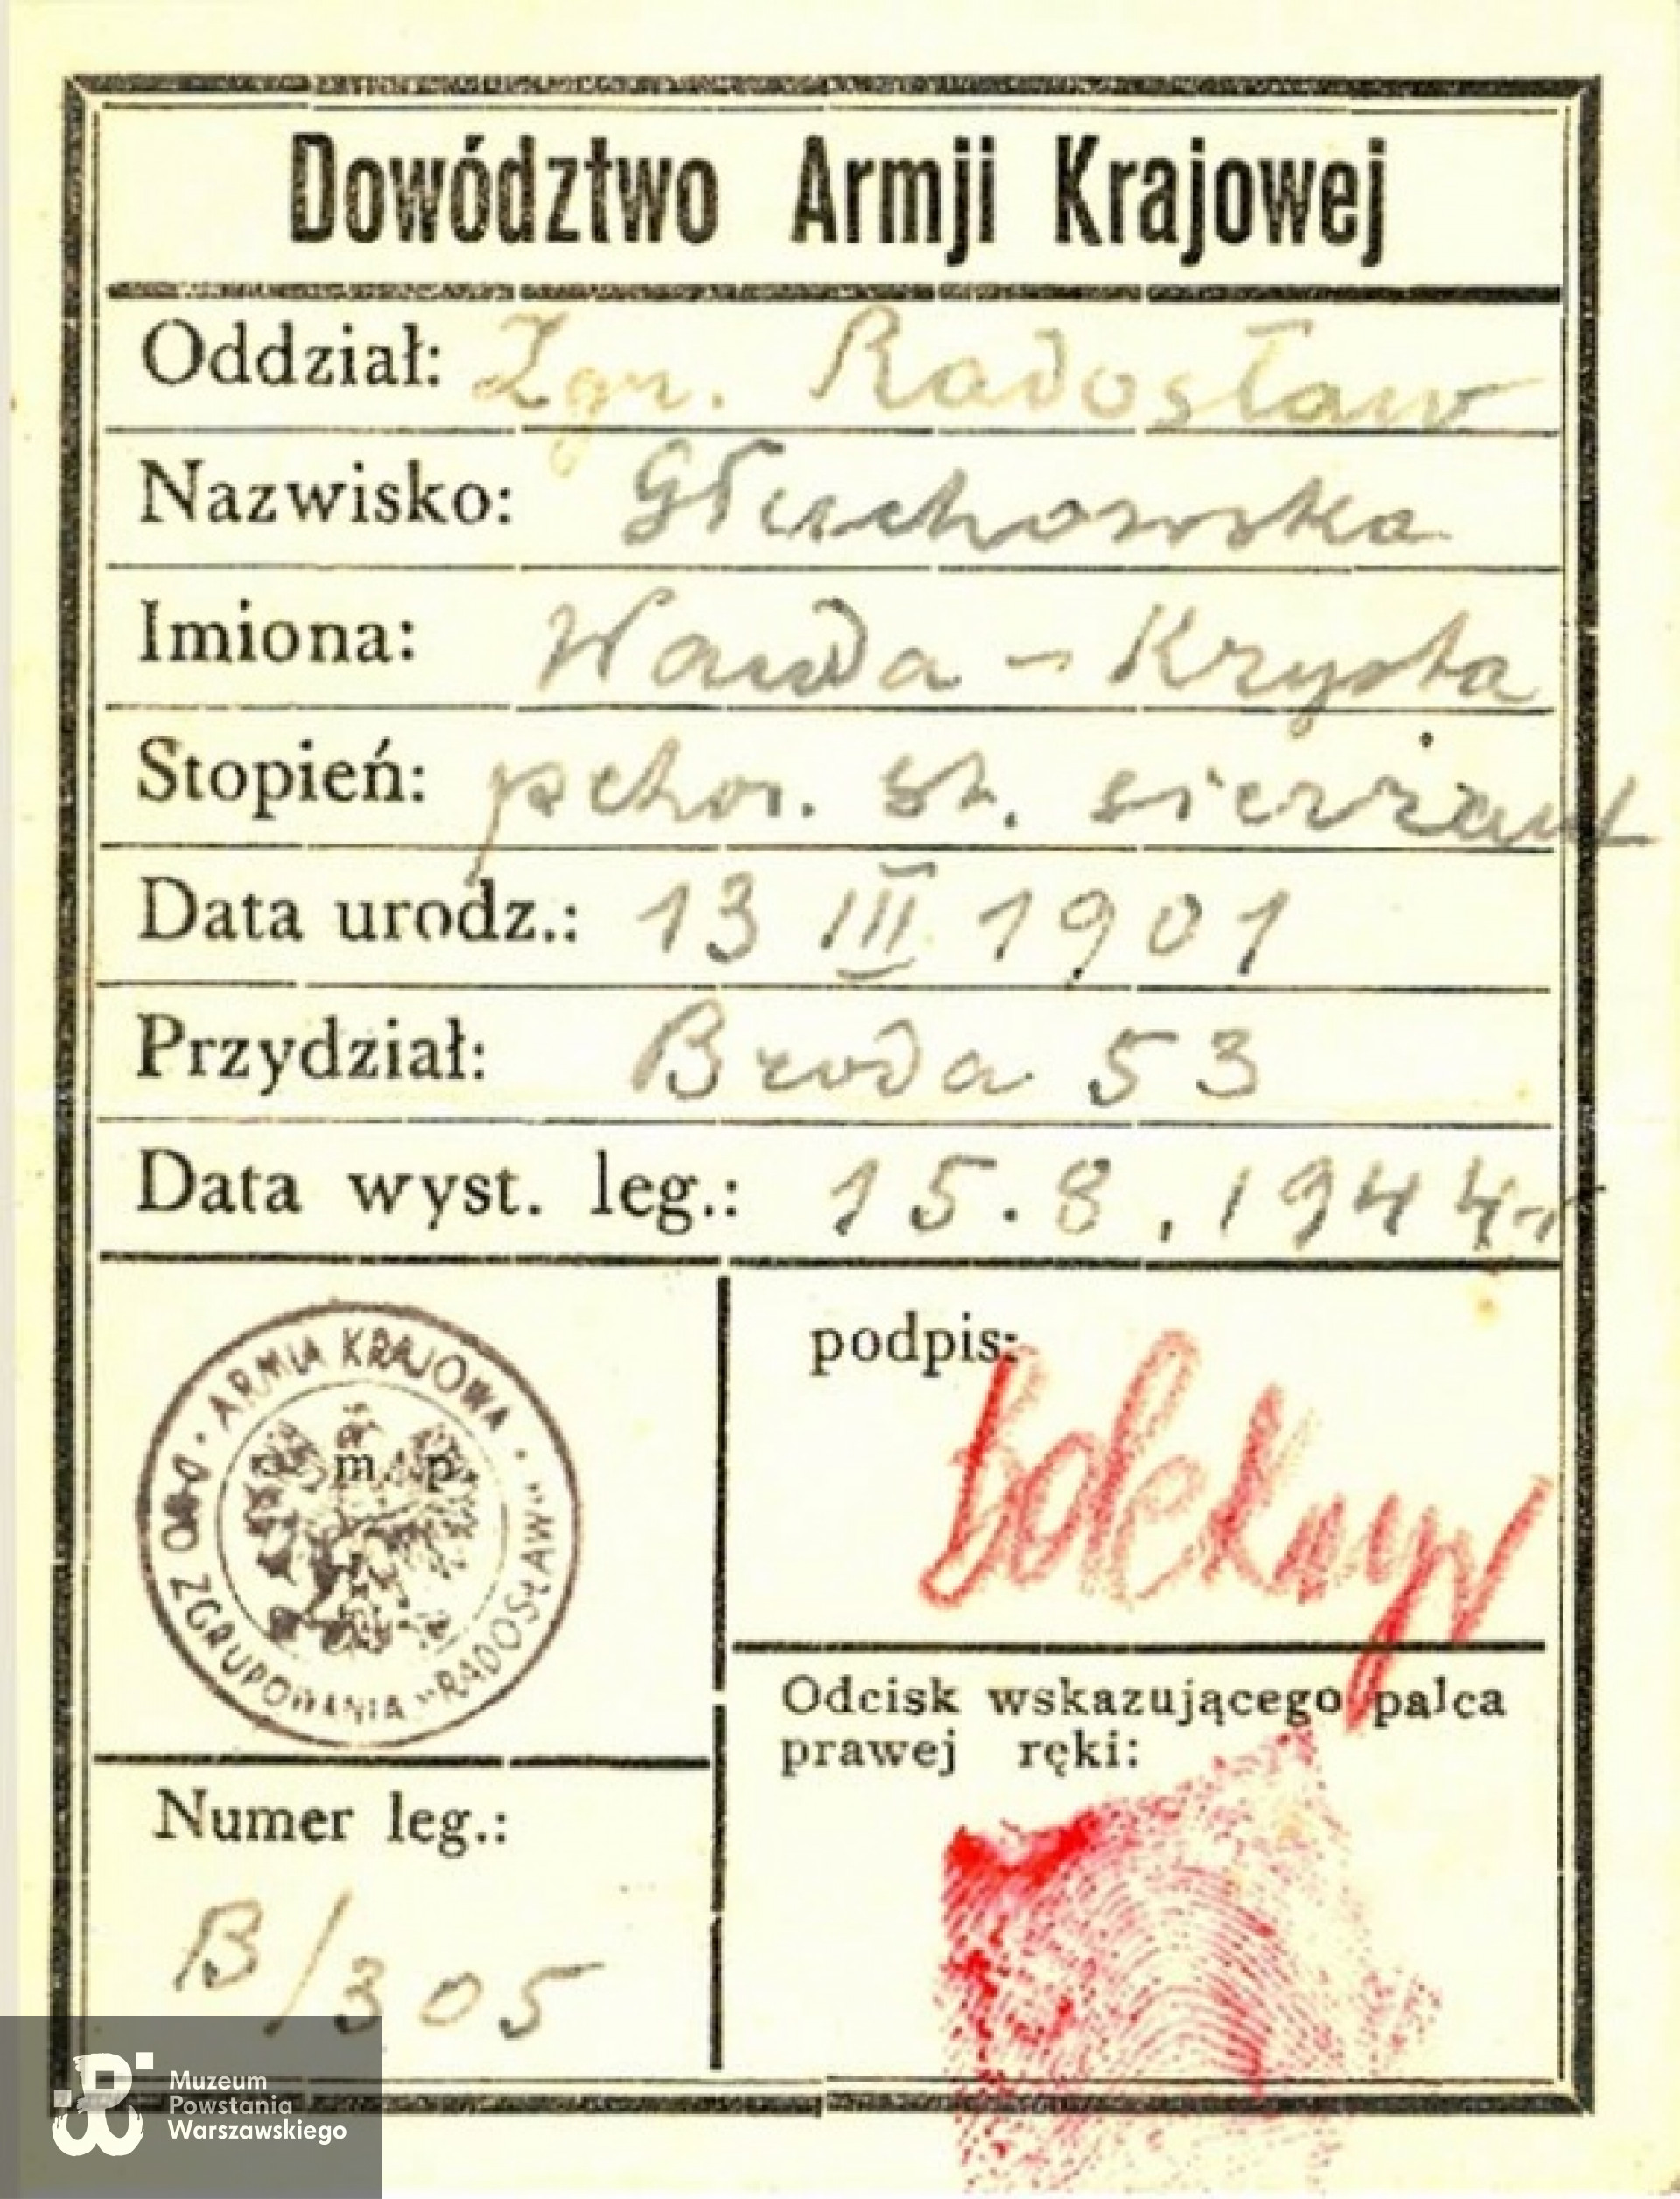 Dowództwo Armji Krajowej
Oddział: Zgr. Radosław
Nazwisko: Głuchowska
Imiona: Wanda - Krysta
Stopień: pchor. st. sierżant
Data urodz.: 13 III 1901
Przydział: Broda 53
Data wyst. leg.: 15.8.1944 r
ARMIA KRAJOWA
ZGRUPOWANIA "RADOSŁAW"
m. p.
podpis:
Odcisk wskazującego palca
prawej ręki:
Numer leg.:
B/305
Muzeum
Powstania
Warszawskiego